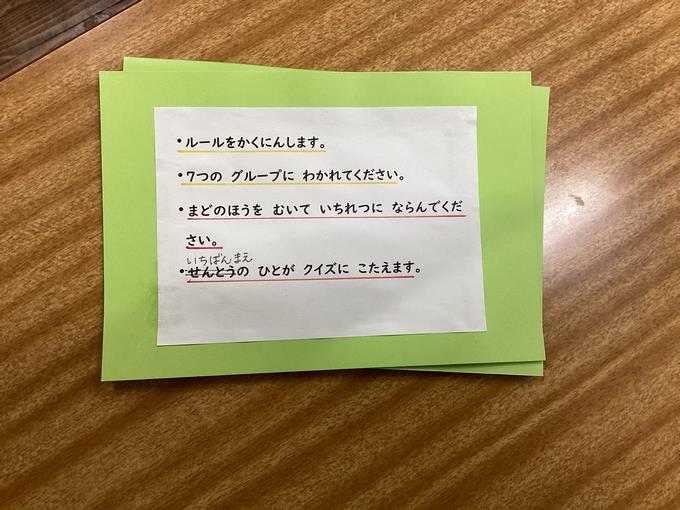 ・ルールをかくにんします。
・7つの グループに わかれてください。
・まどのほうを むいて いちれつに ならんでくだ
さい。
いちばんまえ
・せんとうの ひとが クイズに こたえます。